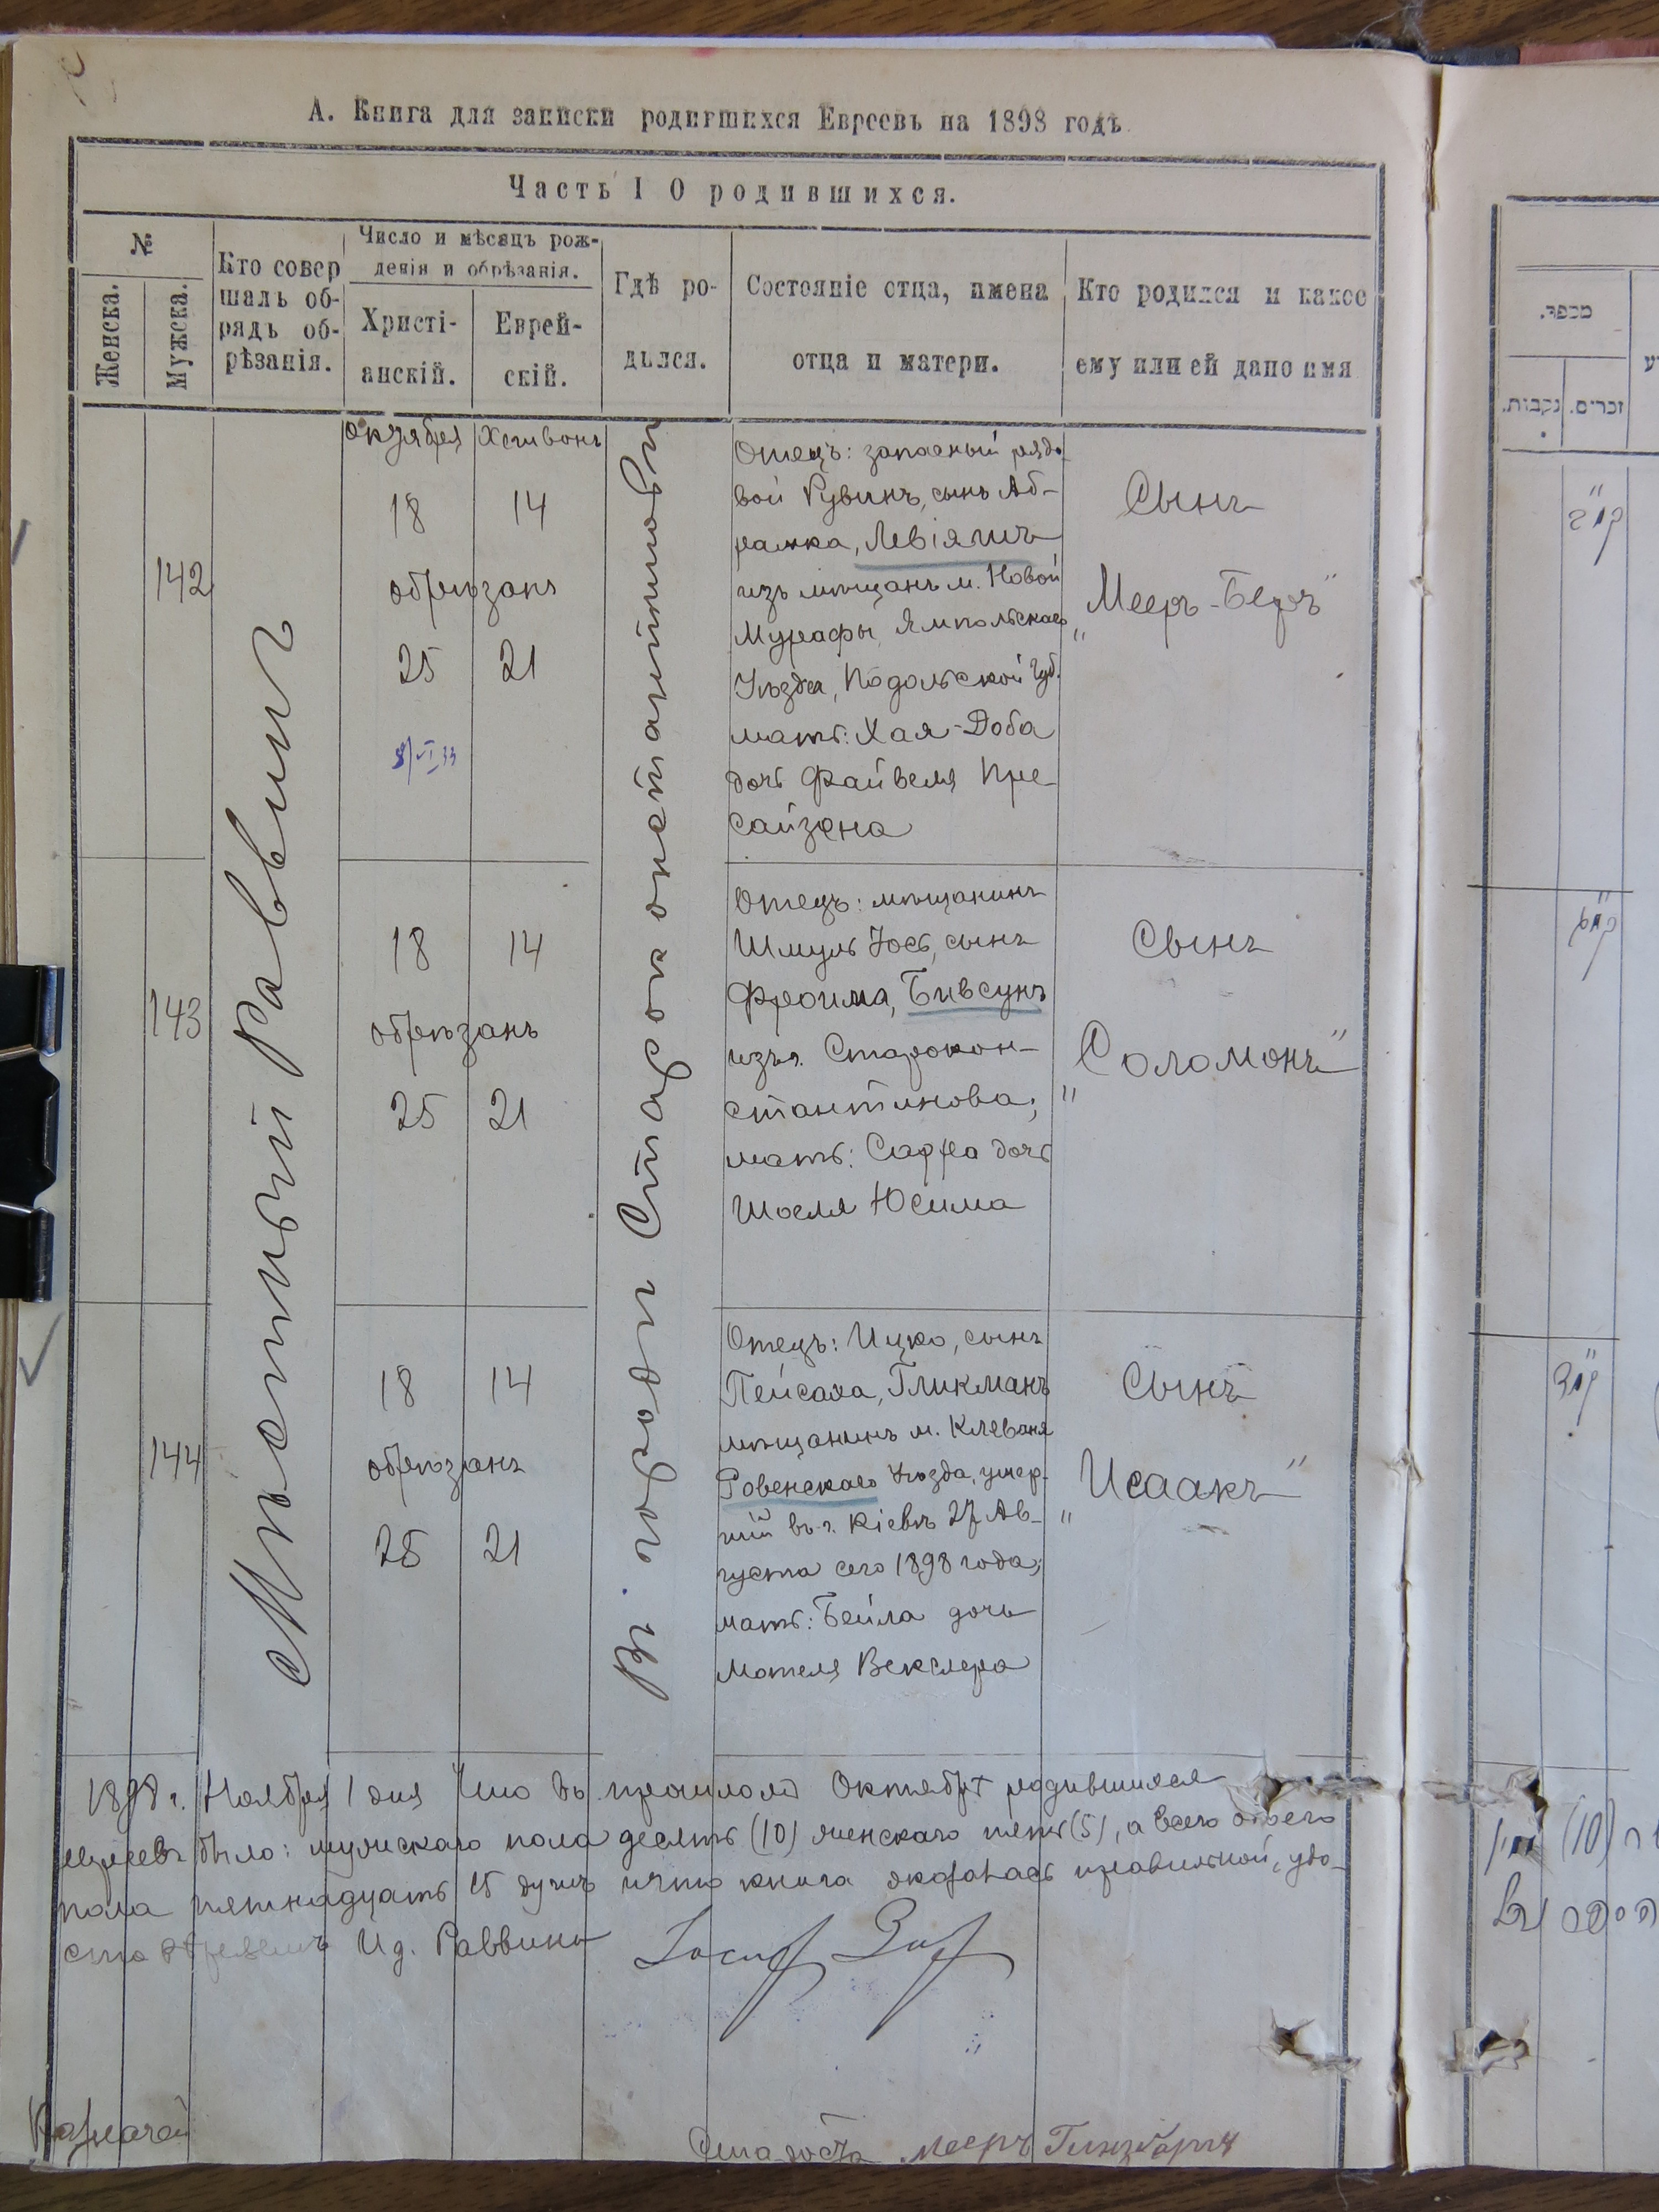 А. Книга для записки родившихся Евреевъ на 1898 годъ
Часть I О родившихся.
№
Женска.
Мужска.
Кто совер
шалъ об-
рядъ об-
рѣзанія.
Число и мѣсяцъ рож-
денія и обрѣзанія.
Христі-
анскій.
Еврей-
скій.
Гдѣ ро-
дился.
Состояніе отца, имена
отца и матери.
Кто родился и какое
ему или ей дано имя
Мѣстный Раввинъ
В. городѣ Староконстантиновѣ
142
Октября
Хешвонъ
18 14
обрѣзанъ
25 21
Отецъ: запасный рядо-
вой Рувинъ, сынъ Аб-
рамка, Левіятъ
изъ мѣщанъ м. Новой
Мурафы Ямпольскаго
Уѣзда, Подольской губ.
мать: Хая-Доба
дочь Файвеля Пре-
сайзена
Сынъ
„Мееръ-Беръ"
143
18 14
обрѣзанъ
25 21
Отецъ: мѣщанинъ
Шмуль Іось, сынъ
Фроима, Бивсунъ
изъ г. Старокон-
стантинова;
мать: Сарра дочь
Шоеля Юсима
Сынъ
„Соломонъ"
144
18 14
обрѣзанъ
25 21
Отецъ: Ицко, сынъ
Пейсаха, Гликманъ
мѣщанинъ м. Клеваня
Ровенскаго Уѣзда, умер-
шій въ г. Кіевѣ 27 Ав-
густа сего 1898 года;
мать: Бейла дочь
Мотеля Векслера
Сынъ
„Исаакъ"
1898 г. Ноября 1 дня Что въ прошломъ Октябрѣ родившихся
евреевъ было: мужскаго пола десять (10) женскаго пять (5), а всего обоего
пола пятнадцать 15 душъ и что книга оказалась правильной, удо-
Ид. Раввинъ
Казначей
Староста Мееръ Гинзбургъ
מספר.
נקבות.
זכרים.
קמ״ב
קמ״ג
קמ״ד
(10)